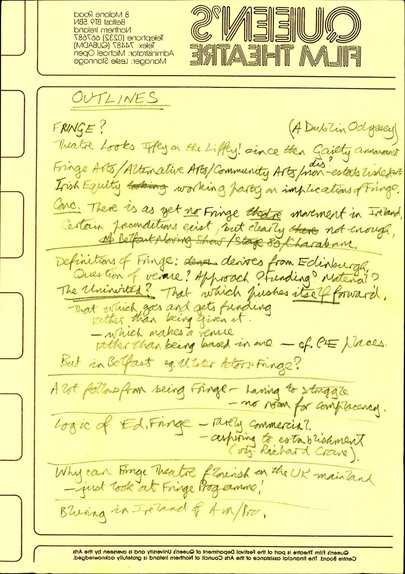 QUEEN'S
FILM THEATRE
8 Malone Road
Belfast BT9 5BN
Northern Ireland
Telephone (0232) 667687
Telex 74487 (QUBADM)
Administrator: Michael Open
Manager: Leslie Stannage
OUTLINES
FRINGE? (A Dublin Odyssey)
Theatre Looks Iffy on the Liffey! since then Gaiety announced
dis?
Fringe Arts/Alternative Arts/Community Arts/non-establishment
Irish Equity looking working party on implications of Fringe.
Conc: There is as yet no Fringe theatre movement in Ireland,
Certain preconditions exist, but clearly there not enough,
Belfast Moving Show/Stage 80/Charabanc.
Definitions of Fringe: derives from Edinburgh
Question of venue? Approach? Funding? Material?
The Uninvited? That which pushes itself forward.
that which goes and gets funding
rather than being given it.
– which makes a venue
rather than being based in one – cf. places.
But in Belfast eg. Ulster Actors Fringe?
A lot follows from being Fringe – having to struggle
– no room for complacency.
Logic of Ed. Fringe – rarely commercial
– aspiring to establishment
(viz Richard Crane).
Why can Fringe Theatre flourish on the UK mainland
– just look at Fringe Programme!
Blurring in Ireland of Am/Pro.
Queen's Film Theatre is part of the Festival Department of Queen's University and is overseen by the Arts
Centre Board. The financial assistance of the Arts Council of Northern Ireland is gratefully acknowledged.